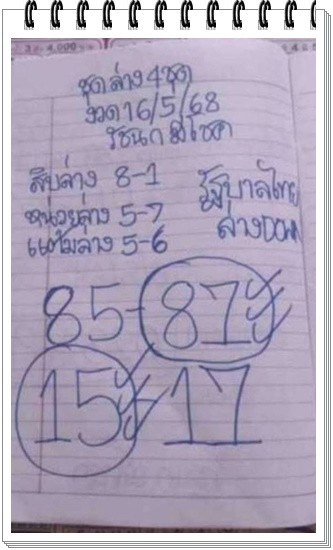 ชุดล่าง 4 ชุด
งวด 16/5/68
โชค
สิบล่าง 8-1
หน่วยล่าง 5-7
แต้มล่าง 5-6
รัฐบาลไทย
ล่าง
85-87
15-17